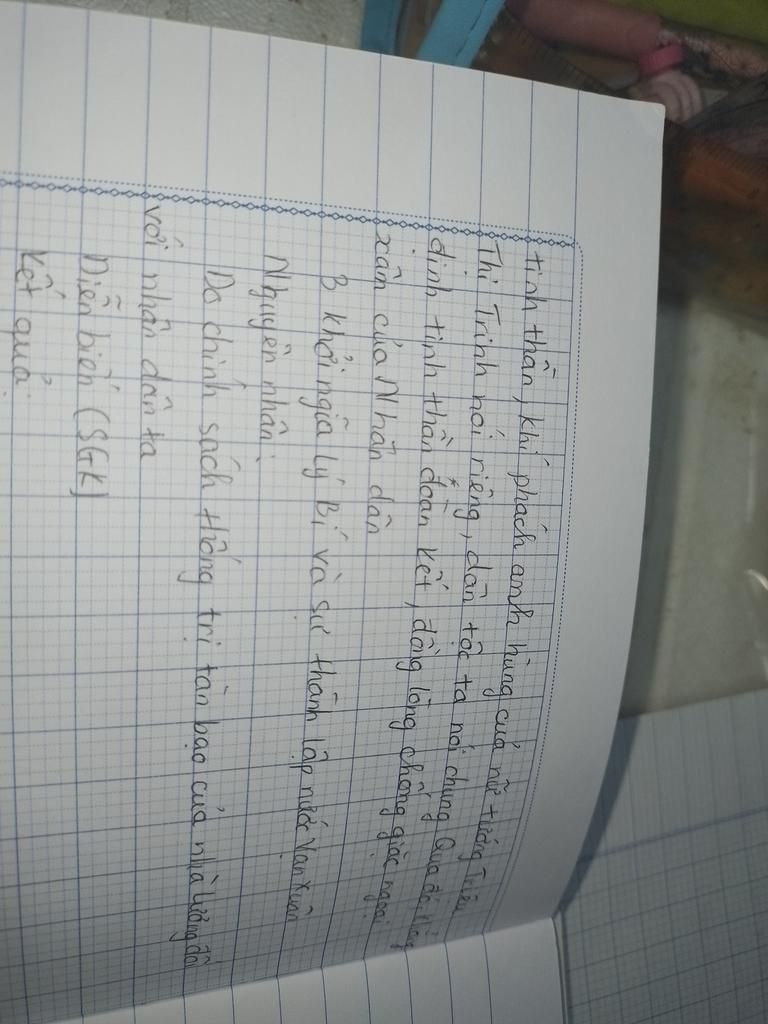 tinh thần, khí phách anh hùng của nữ tướng Triệu
Thị Trinh nói riêng, dân tộc ta nói chung Qua đó
định tinh thần đoàn kết, đồng lòng chống giặc ngoại
xâm của Nhân dân
3 Khởi nghĩa Lý Bí và sự thành lập nước Vạn Xuân
Nguyên nhân:
Do chính sách thống trị tàn bạo của nhà Lương đối
với nhân dân ta
Diễn biến (SGK)
Kết quả: